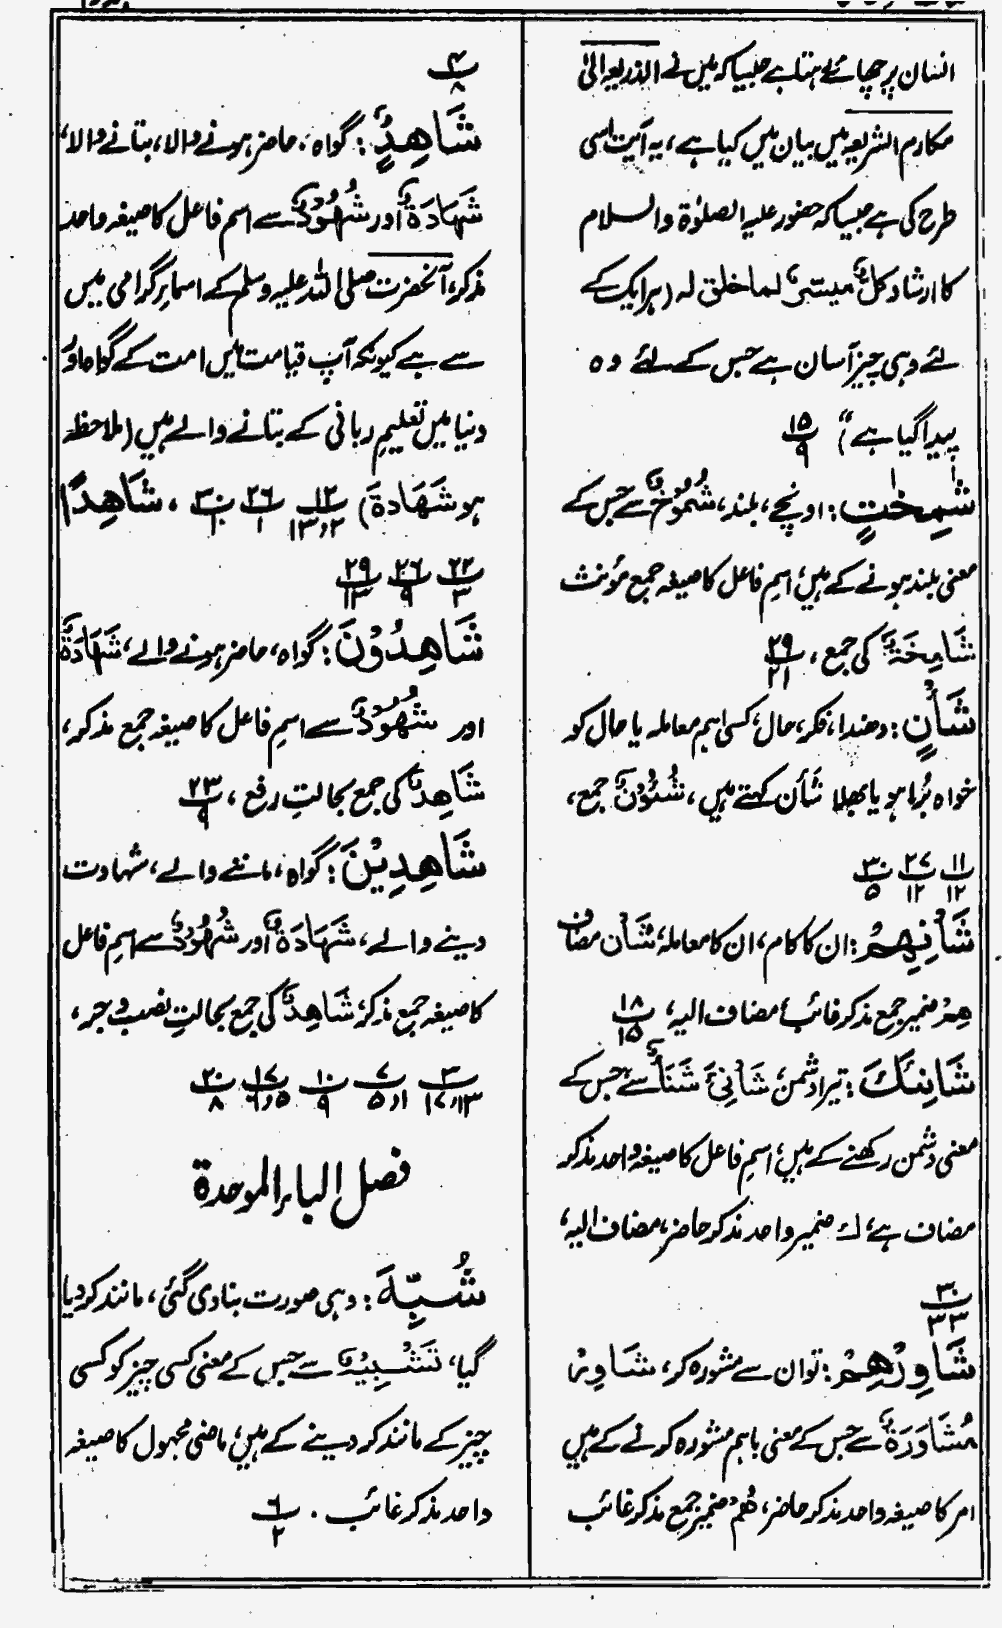 انسان پر چھائے رہتا ہے جیسا کہ میں نے الذریعہ الیٰ
مکارم الشریعہ میں بیان میں کیا ہے، یہ آیت اسی
طرح کی ہے جیسا کہ حضور علیہ الصلوٰۃ والسلام
کا ارشاد کُلٌّ مُیَسَّرٌ لما خلق لہ (ہر ایک کے
لئے وہی چیز آسان ہے جس کے لئے وہ
پیدا گیا ہے) ۱۵/۹
شٰمِخٰتٍ: اونچے، بلند، شُمُوْخٌ سے جس کے
معنی بلند ہونے کے ہیں، اسمِ فاعل کا صیغہ جمع مؤنث
شَامِخَۃٌ کی جمع، ۲۹/۲۱
شَأْنٍ: دھندا، فکر، حال، کسی اہم معاملہ یا حال کو
خواہ بُرا ہو یا بھلا شَأن کہتے ہیں، شُئُوْنٌ جمع،
۱۱/۱۲ ۲۷/۱۲ ۳۰/۵
شَأْنِهِمْ: ان کا کام، ان کا معاملہ، شَأْن مضاف
هِمْ ضمیر جمع مذکر غائب مضاف الیہ، ۱۸/۱۵
شَانِئَكَ: تیرا دشمن، شَانِیْءَ شَنَأٌ سے جس کے
معنی دشمن رکھنے کے ہیں، اسمِ فاعل کا صیغہ واحد مذکر
مضاف ہے، ك ضمیر واحد مذکر حاضر، مضاف الیہ،
۳۰/۳۳
شَاوِرْهُمْ: تو ان سے مشورہ کر، شَاوِرْ
مُشَاوَرَۃٌ سے جس کے معنی باہم مشورہ کرنے کے ہیں
امر کا صیغہ واحد مذکر حاضر، هُمْ ضمیر جمع مذکر غائب
۴/۸
شَاهِدٌ: گواہ، حاضر ہونے والا، بتانے والا،
شَهَادَۃٌ اور شُهُوْدٌ سے اسم فاعل کا صیغہ واحد
مذکر، آنحضرت صلی اللہ علیہ وسلم کے اسماء گرامی میں
سے ہے کیونکہ آپ قیامت میں امت کے گواہ اور
دنیا میں تعلیم ربانی کے بتانے والے ہیں (ملاحظہ
ہو شَهَادَة) ۱۲/۱۳،۲ ۲۶/۱ ۳۰/۱۰، شَاهِدًا
۲۲/۳ ۲۶/۹ ۲۹/۱۳
شَاهِدُوْنَ: گواہ، حاضر ہونے والے، شَهَادَۃٌ
اور شُهُوْدٌ سے اسمِ فاعل کا صیغہ جمع مذکر،
شَاهِدٌ کی جمع بحالتِ رفع، ۲۳/۹
شَاهِدِيْنَ: گواہ، ماننے والے، شہادت
دینے والے، شَهَادَۃٌ اور شُهُوْدٌ سے اسمِ فاعل
کا صیغہ جمع مذکر، شَاهِدٌ کی جمع بحالتِ نصب و جر،
۳/۱۷،۱۳ ۷/۵،۱ ۱۰/۹ ۱۷/۶،۵ ۲۰/۸
فصل الباء الموحدۃ
شُبِّهَ: وہی صورت بنا دی گئی، مانند کر دیا
گیا، تَشْبِیْہٌ سے جس کے معنی کسی چیز کو کسی
چیز کے مانند کر دینے کے ہیں، ماضی مجہول کا صیغہ
واحد مذکر غائب. ۶/۲